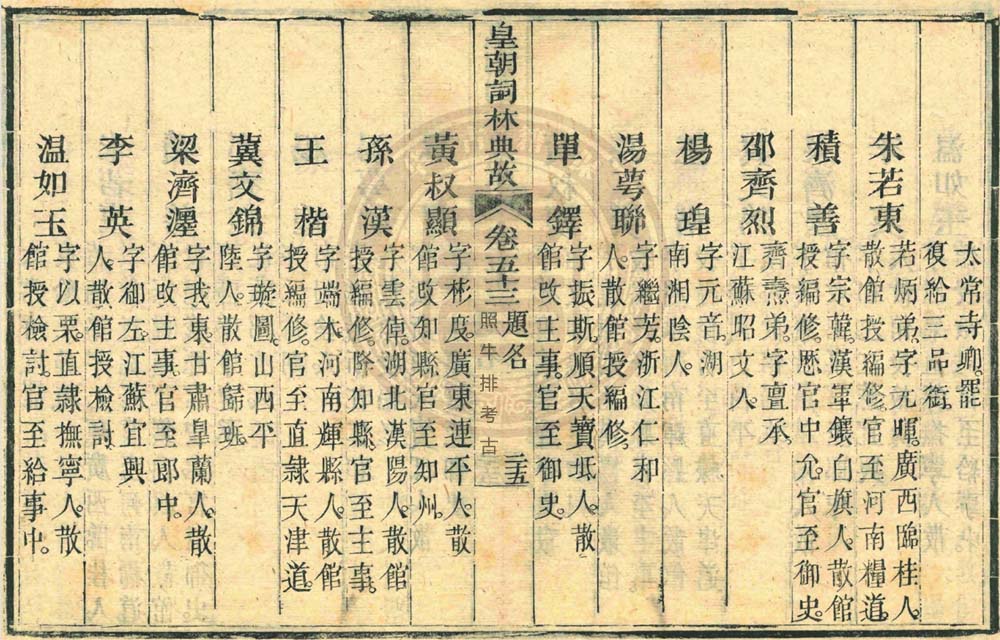 太常寺卿罷
復給三品銜
朱若東
若炳弟字元暉廣西臨桂人
散館授編修官至河南糧道
積善
字宗韓漢軍鑲白旗人散館
授編修歷官中允官至御史
邵齊烈
齊燾弟字亶承
江蘇昭文人
楊瑝
字元音湖
南湘陰人
湯萼聯
字繼芳浙江仁和
人散館授編修
單鐸
字振斯順天寶坻人散
館改主事官至御史
皇朝詞林典故 卷五十三 題名 三五
照牛排考古
黃叔顯
字彬度廣東連平人散
館改知縣官至知州
孫漢
字雲倬湖北漢陽人散館
授編修降知縣官至主事
王楷
字端木河南輝縣人散館
授編修官至直隸天津道
冀文錦
字璇圖山西平
陸人散館歸班
梁濟瀍
字我東甘肅皐蘭人散
館改主事官至郎中
李英
字御左江蘇宜興
人散館授檢討
温如玉
字以栗直隸撫寧人散
館授檢討官至給事中